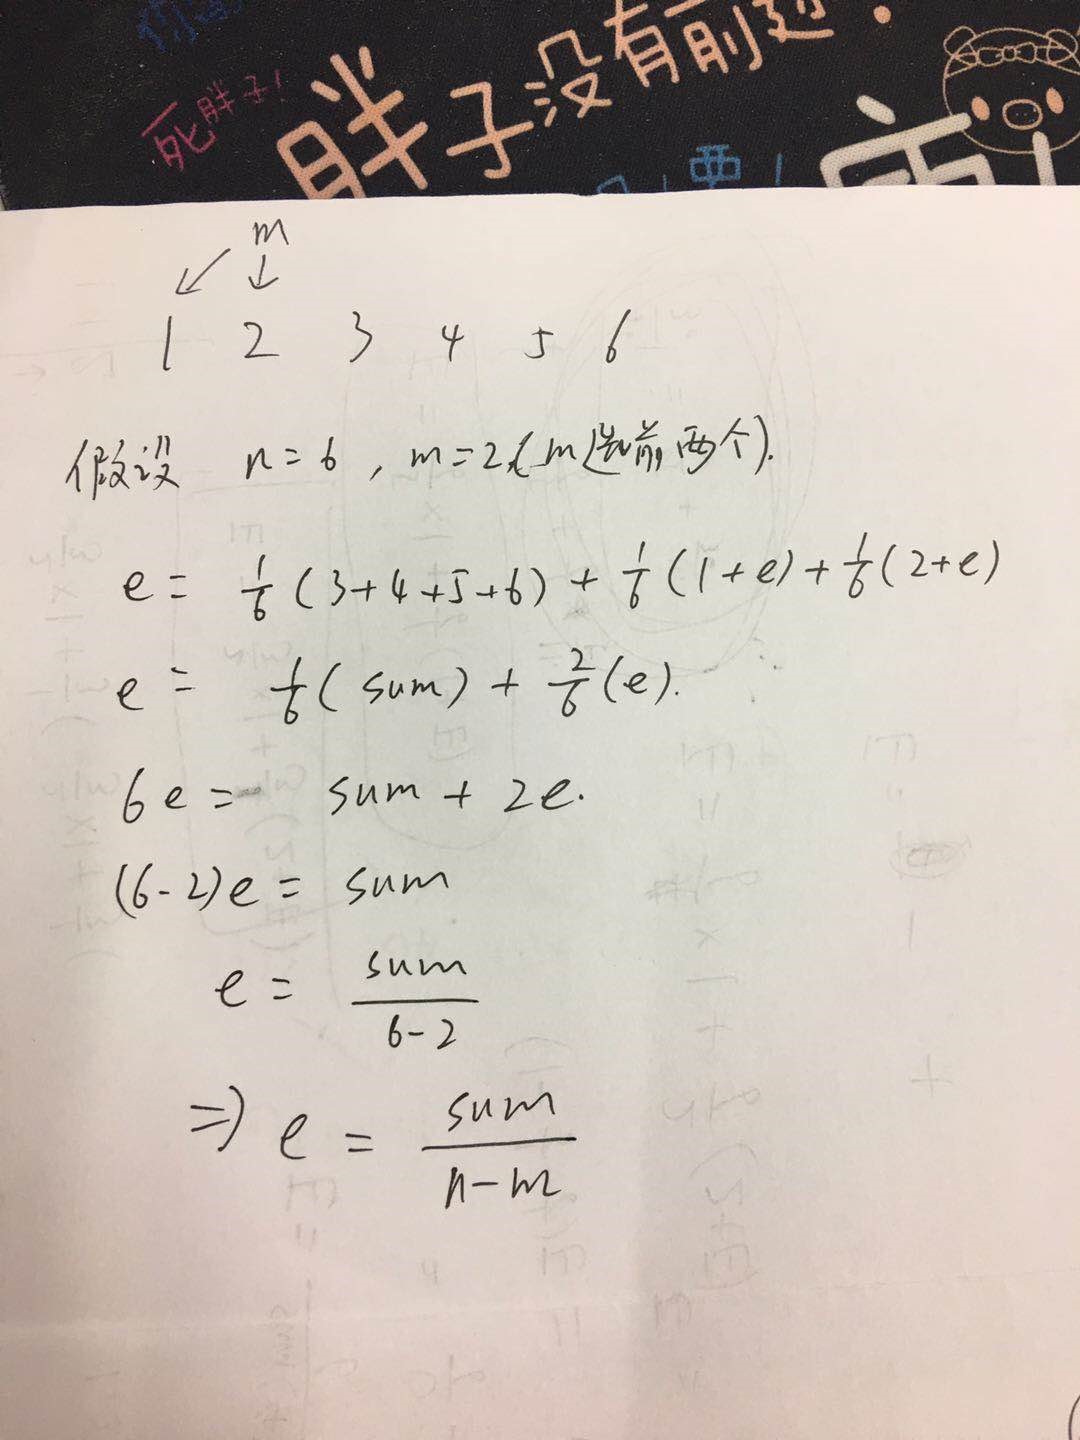 死胖子!
胖子没有前途!
m
↙ ↓
1 2 3 4 5 6
假设 n=6, m=2,(m选前两个).
e = 1/6 (3+4+5+6) + 1/6 (1+e) + 1/6 (2+e)
e = 1/6 (sum) + 2/6 (e).
6e = sum + 2e.
(6-2)e = sum
e = sum/6-2
⇒ e = sum/n-m